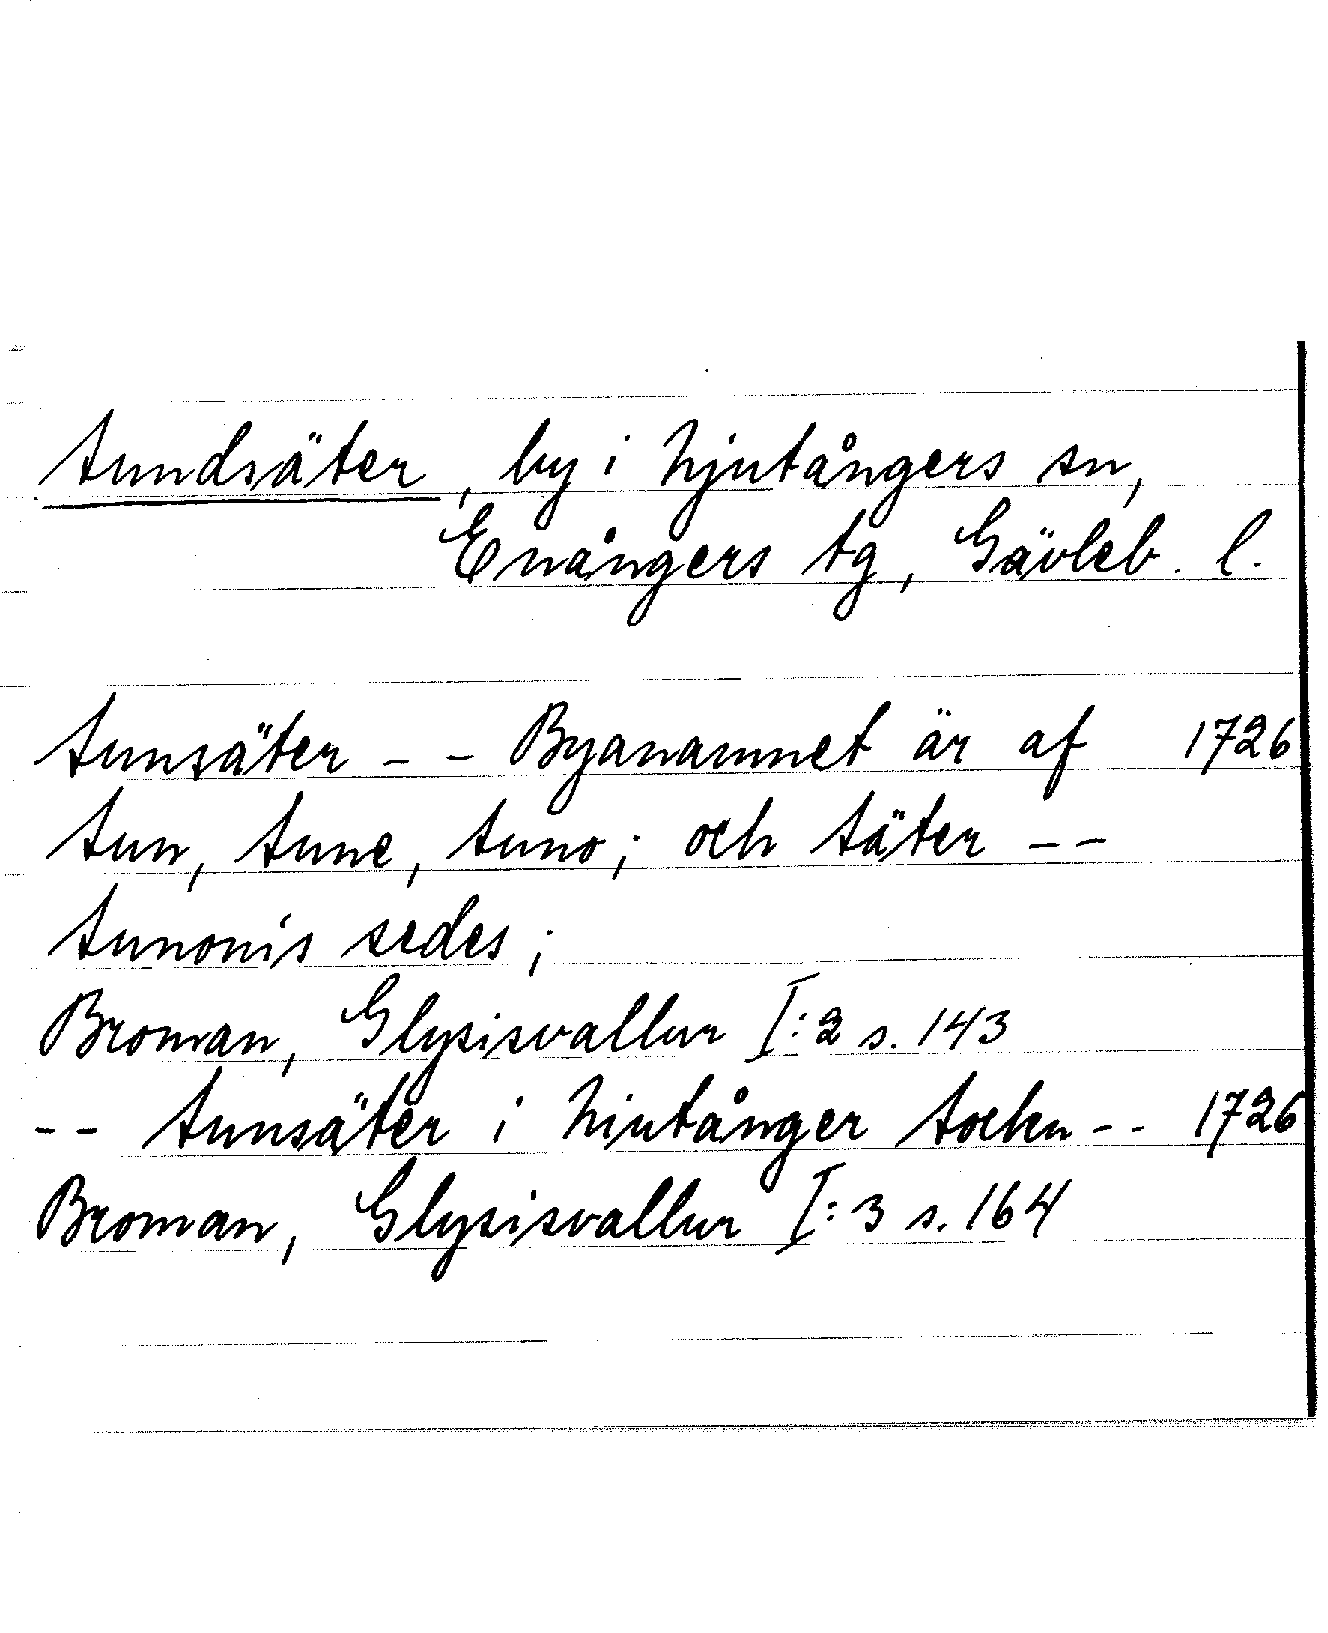 Sundsäter, by i Njutångers sn,
Enångers tg, Gävleb. l.
Sunsäter - - Byanamnet är af 1726
Sun, Sune, Suno; och Säter - -
Sunonis sedes;
Broman, Glysisvallur I:2 s. 143
- - Sunsäter i Niutånger Sockn - - 1726
Broman, Glysisvallur I:3 s. 164